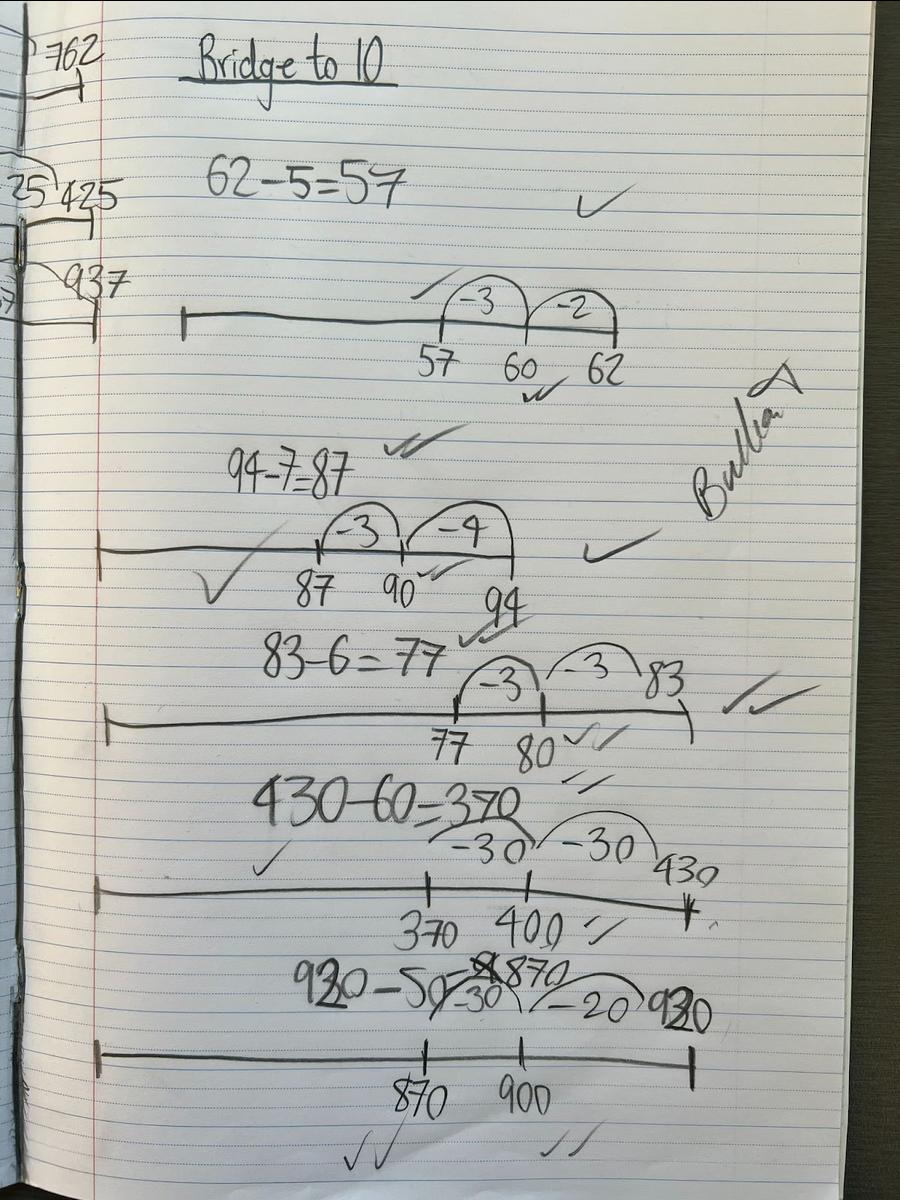 762
25 425
937
Bridge to 10
62-5=57
-3 -2
57 60 62
94-7=87
-3 -4
87 90 94
83-6=77
-3 -3 83
77 80
430-60=370
-30 -30 430
370 400
920-50=870
-30 -20 920
870 900